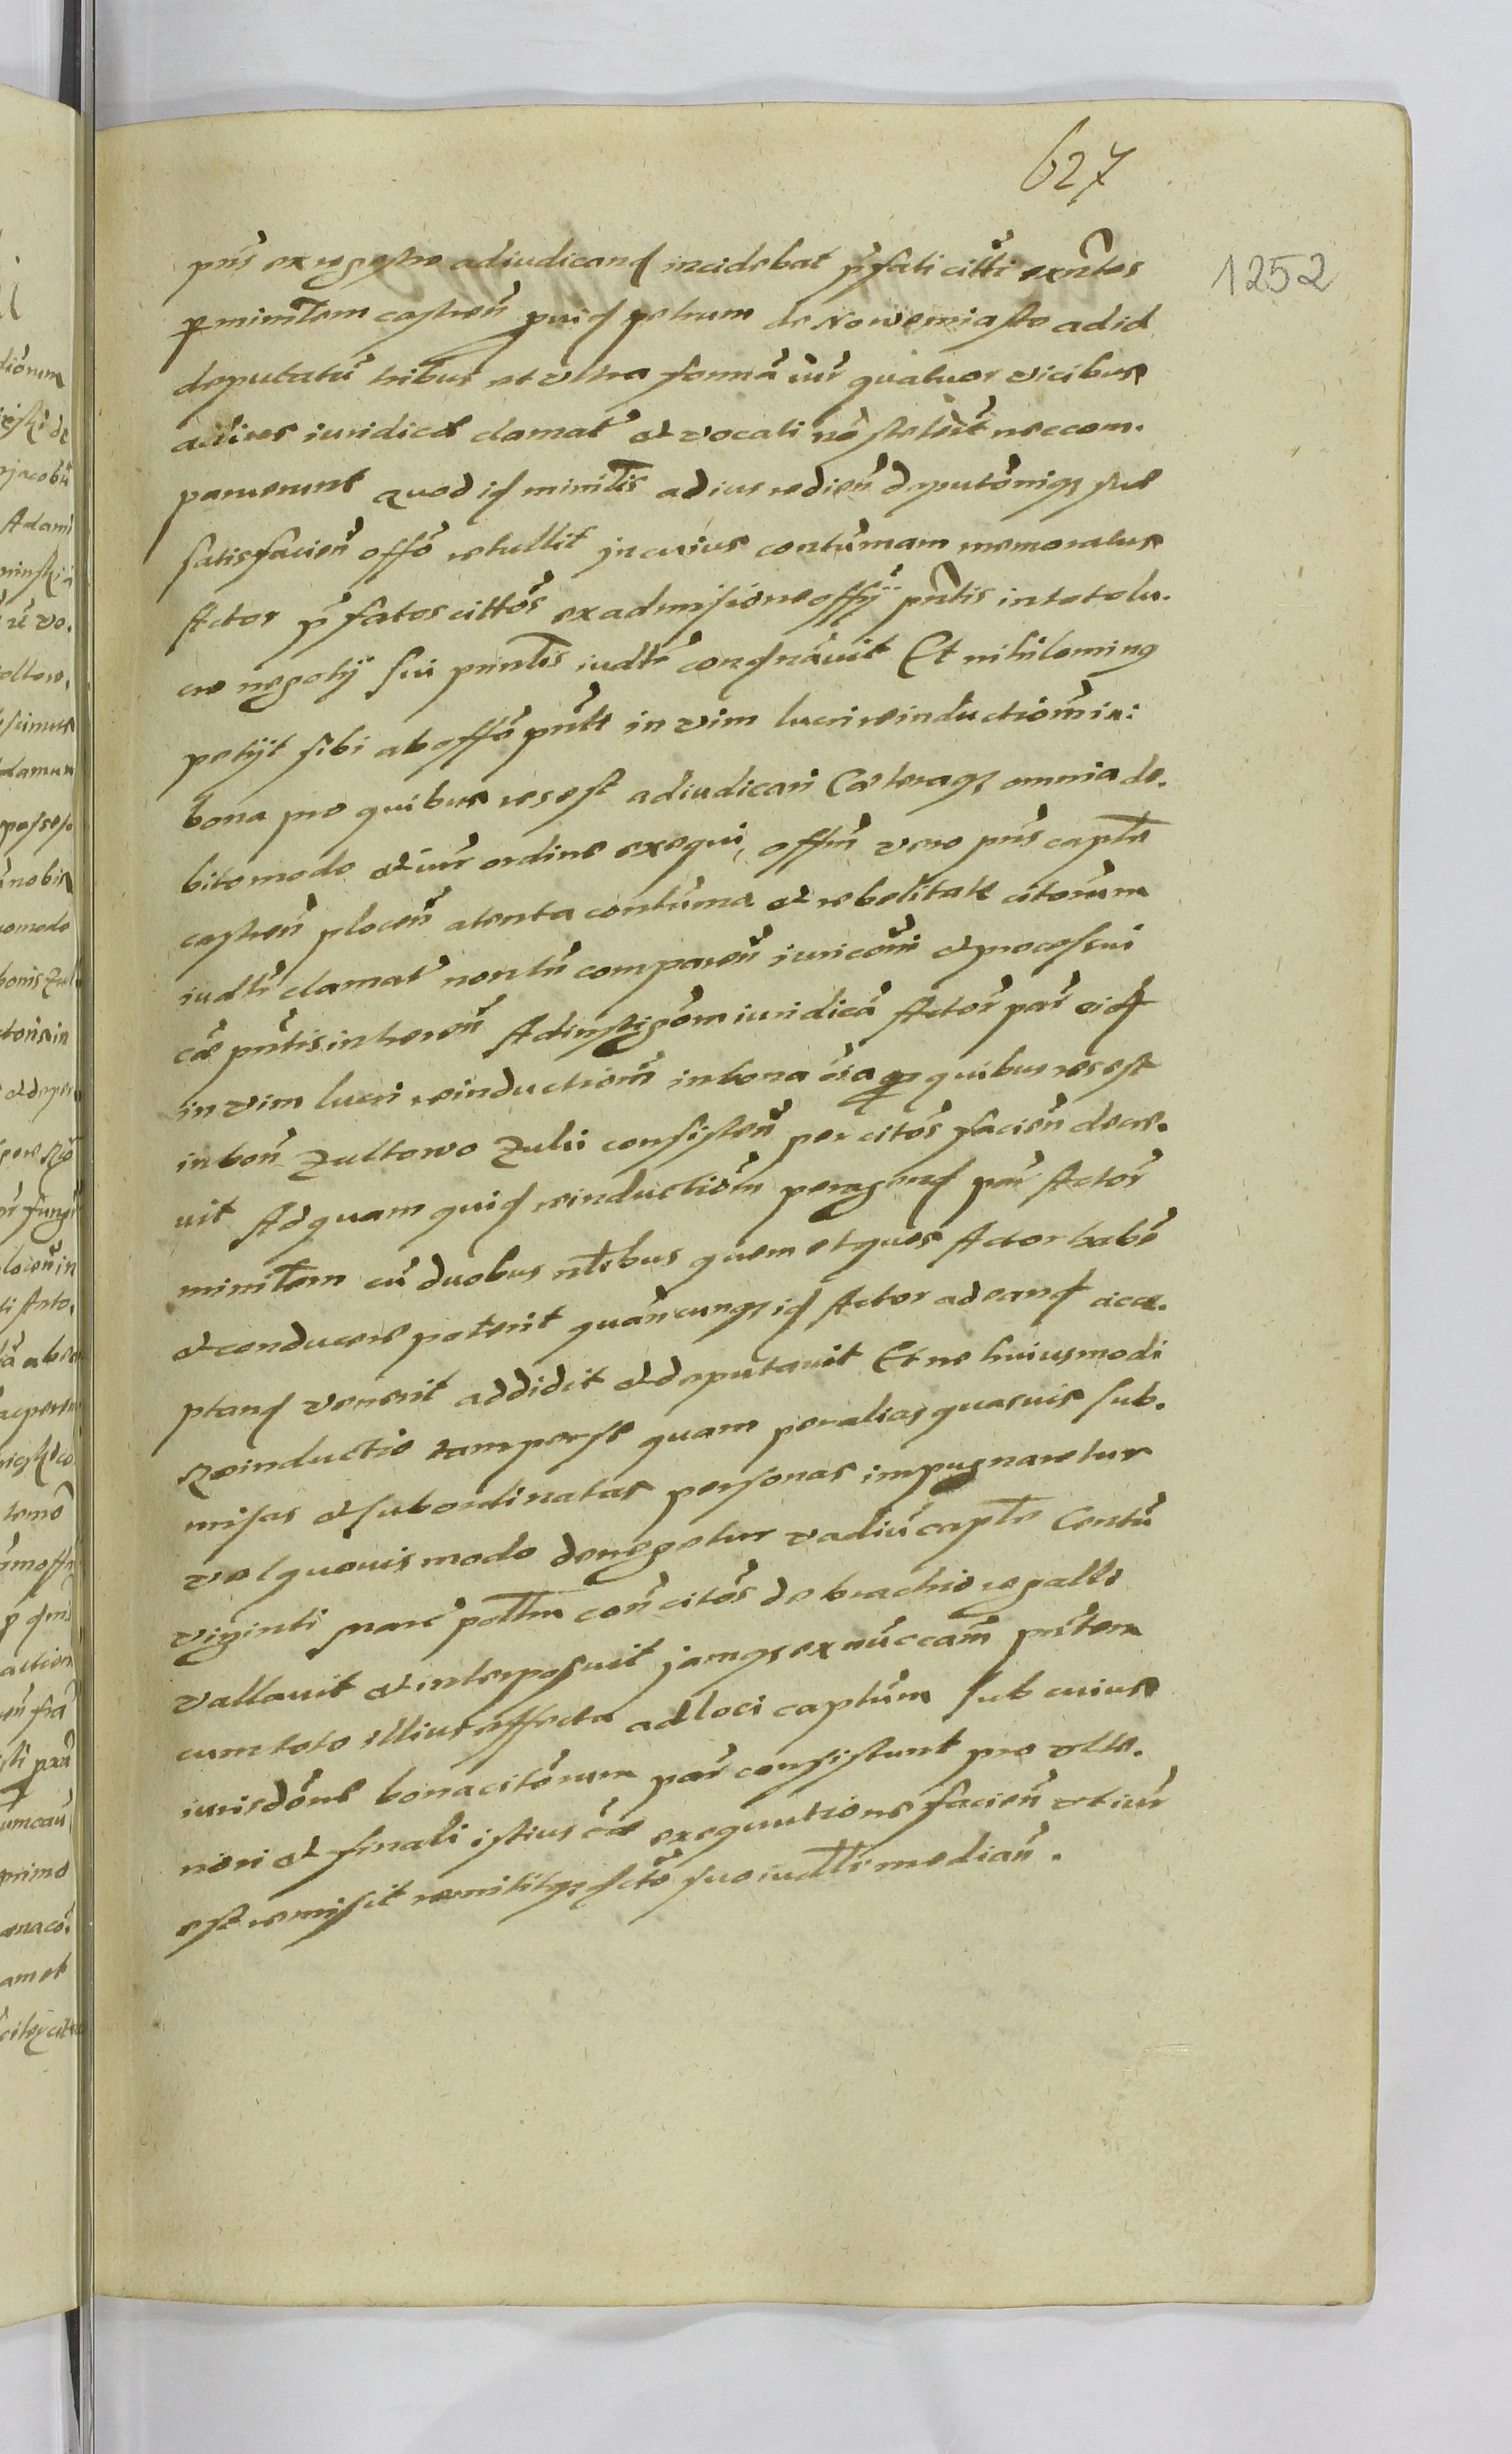 627
1252
pns ex regestro adiudicand incidebat pfati citti exntes
p minirlem castren puid petrum de Nowemiasto ad id
deputatu tribus et vltra forma iur quatuor vicibus
ad ires iuridice clamat et vocati no stelerut nec com.
paruerunt Quod id minirlis ad ius redien deputoniq sue
satisfacien offo retullit in cuius contumam memoratus
Actor pfatos cittos ex admisione offy pntis in toto lu.
cro negoty sui pnntis iudtr condnavit Et nihilominq
petyt sibi ab offo pnti in vim lucri reinductiom in:
bona pro quibus res est adiudicari Caeteraq omnia de.
bito modo et iur ordine exequi, offm vero pns captle
castren plocen atenta contuma et rebelitate citorum
iudtr clamat non tn comparen iuri coni et processui
cae pntis inheren Ad instigom iuridica Actor par eid
in vim lucri reinductiom in bona oia p quibus res est
in bon Zultowo Zulii consisten per citos facien decre.
uit Ad quam quid reinductiom peragend par Actor
minirlem cu duobus nlibus quem et quos Actor habe
et conducere poterit quancunq id Actor ad eand acce.
ptand venerit addidit et deputauit Et ne huiusmodi
Reinductio tam per se quam per alias quasuis sub.
misas et subordinatas personas impugnaretur
vel quouis modo denegetur vadiu captle Centu
viginti marc poltm con citos de brachio regalli
vallauit et interposuit jamq ex nuc cam pntem
cum toto illius effectu ad loci captum sub cuius
iurisdone bona citorum par consistunt pro vlte.
riori et finali istius cae exequutione facien vt iur
est remisit remititq dcto suo iudtr median.